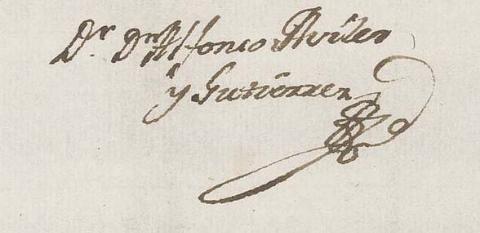 Dr. Dn Alfonso Aviles
y Gutierrez